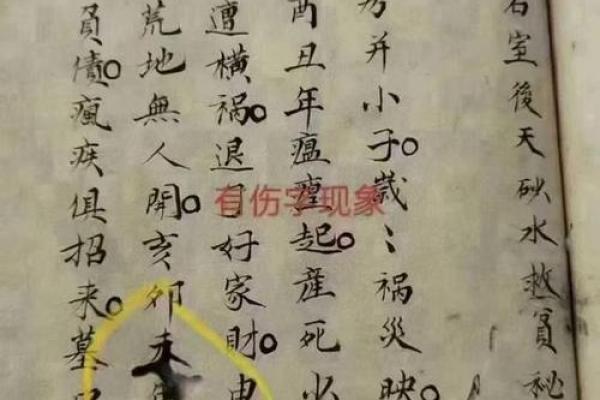 石室後天砂水救貧秘
男并小子歲〻禍災映
酉丑年瘟瘽起産死少
遭橫禍退了好家財申
荒地無人開亥卯未年
負債瘋疾俱招来墓
有伤字现象